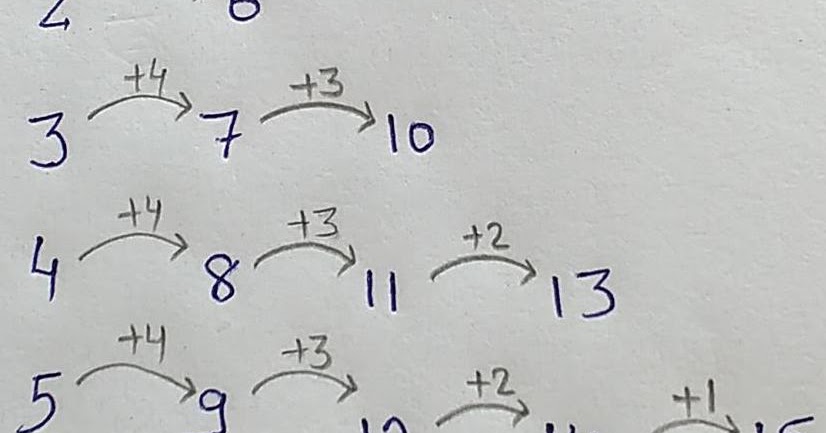 2 6
+4 +3
3 7 10
+4 +3 +2
4 8 11 13
+4 +3 +2 +1
5 9